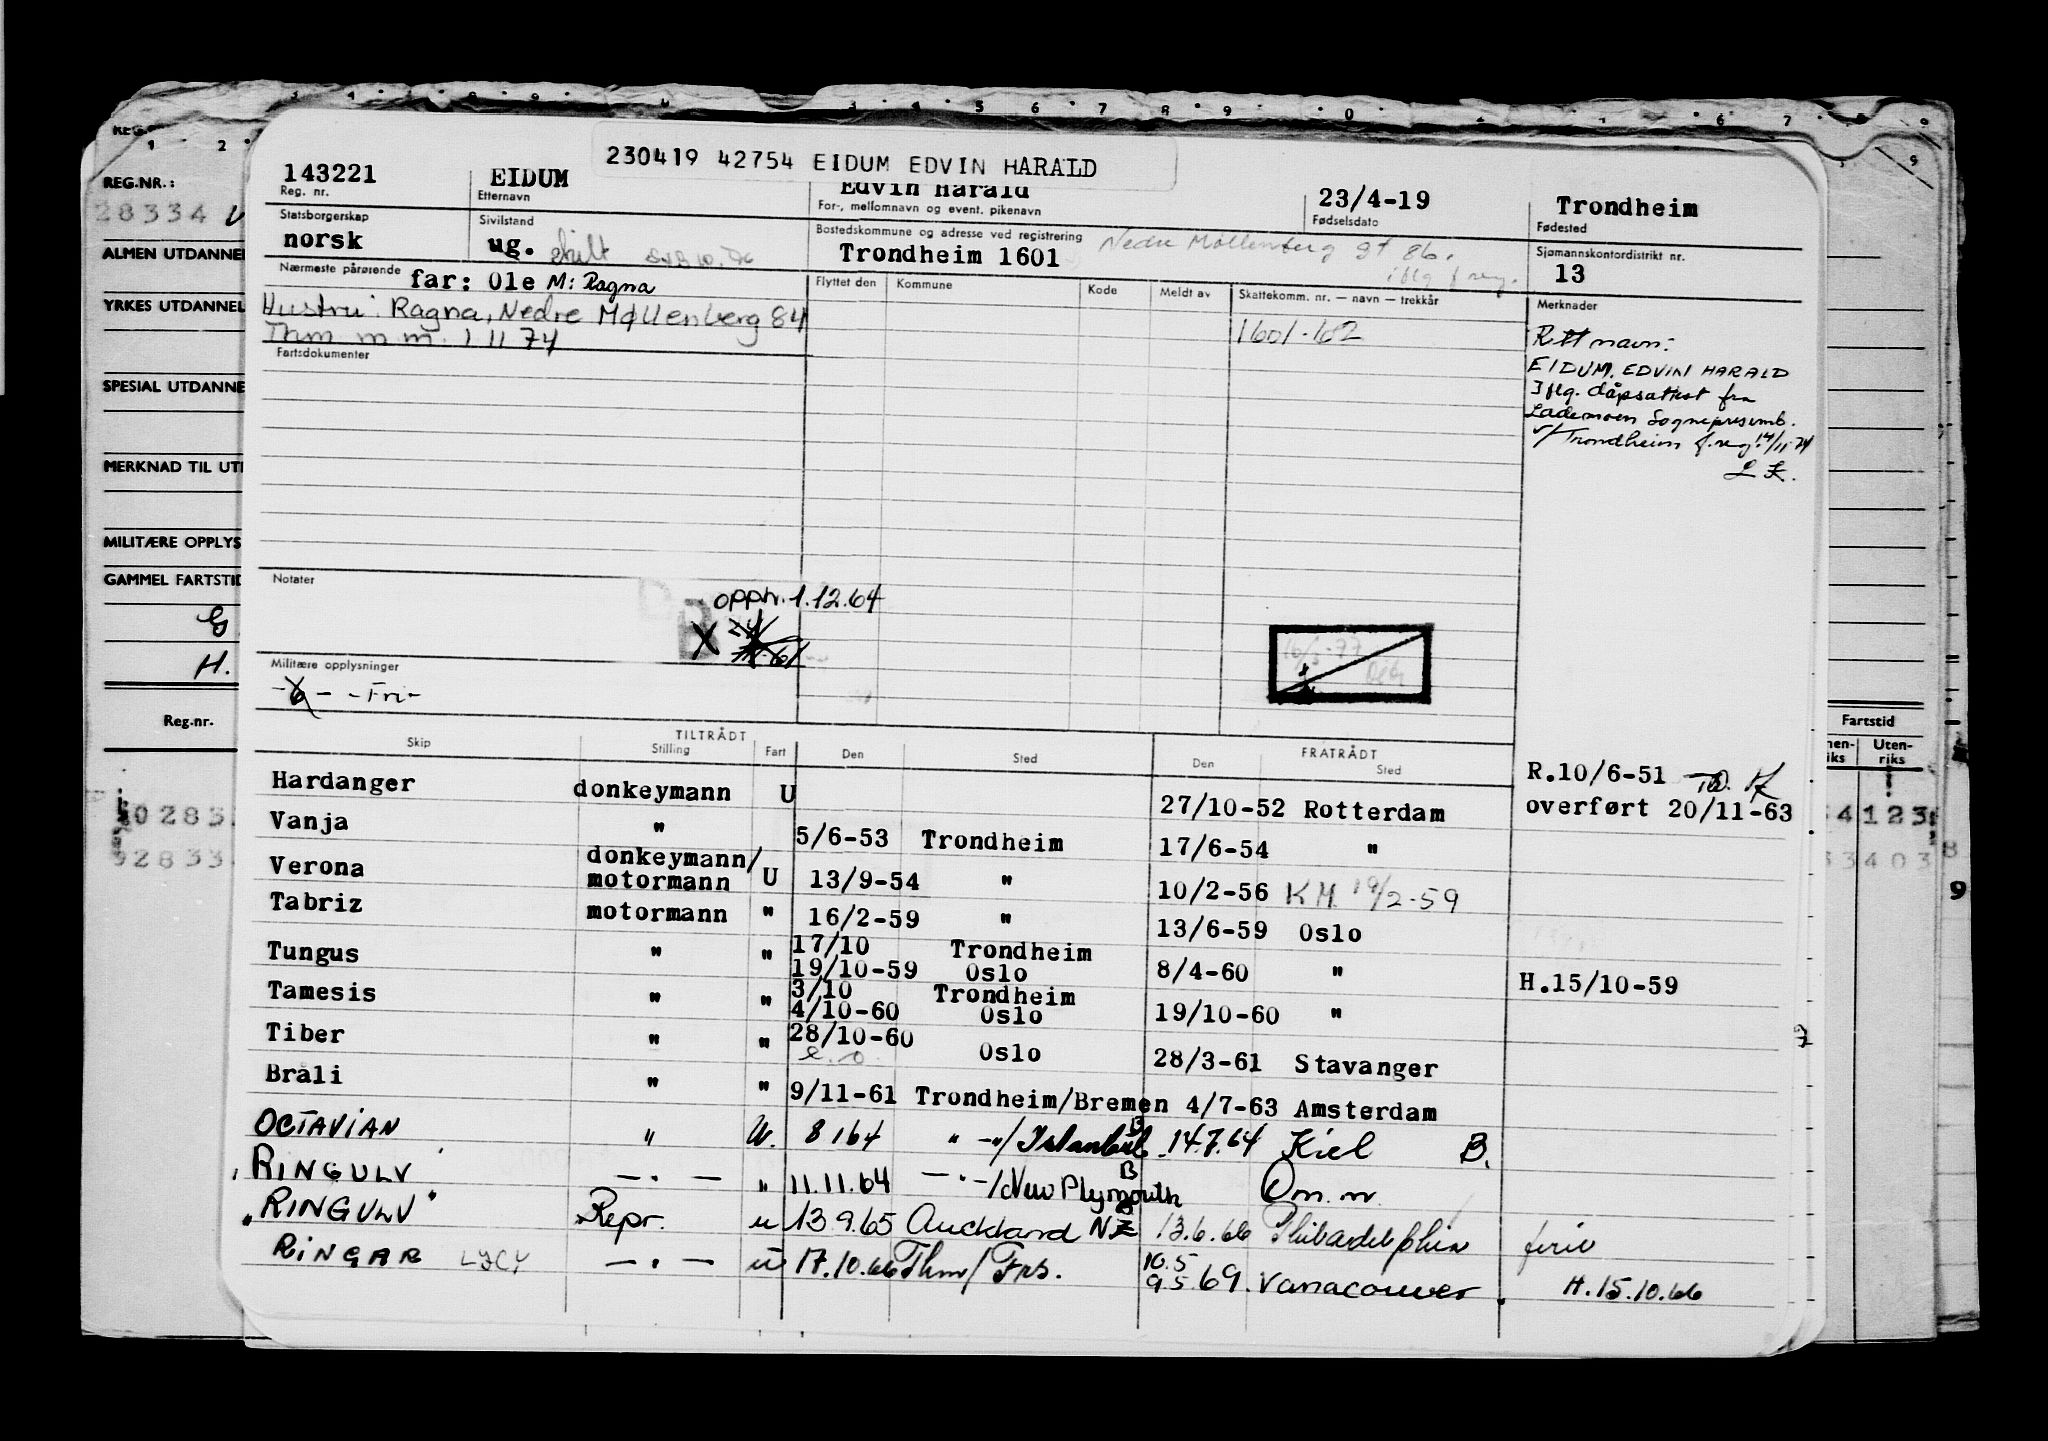 230419 42754 EIDUM EDVIN HARALD
143221 EIDUM Edvin Harald 23/4-19 Trondheim
Reg. nr. Etternavn For-, mellomnavn og event. pikenavn Fødselsdato Fødested
Statsborgerskap Sivilstand Bostedskommune og adresse ved registrering Sjømannskontordistrikt nr.
norsk ug. skilt Trondheim 1601 Nedre Møllenberg gt 86. 13
iflg f reg.
Nærmeste pårørende far: Ole M: Ragna Flyttet den Kommune Kode Meldt av Skattekomm. nr. — navn — trekkår Merknader
Hustru: Ragna, Nedre Møllenberg 84 1601-162
Thm m.m. 1 11 74
Fartsdokumenter
Rett navn:
EIDUM, EDVIN HARALD
Iflg. dåpsattest fra
Lademoen Sogneprestemb.
v/Trondheim f.reg. 14/11-74
L K.
Notater
opph. 1.12.64
B X
16/3-77
Militære opplysninger
-Fri-
TILTRÅDT FRATRÅDT
Skip Stilling Fart Den Sted Den Sted
R.10/6-51
Hardanger donkeymann U 27/10-52 Rotterdam overført 20/11-63
Vanja " 5/6-53 Trondheim 17/6-54 "
Verona donkeymann/
motormann U 13/9-54 " 10/2-56 KM 19/2-59
Tabriz motormann " 16/2-59 " 13/6-59 Oslo
Tungus " " 17/10 Trondheim
19/10-59 Oslo 8/4-60 " H.15/10-59
Tamesis " " 3/10 Trondheim
4/10-60 Oslo 19/10-60 "
Tiber " " 28/10-60 Oslo 28/3-61 Stavanger
Bråli " " 9/11-61 Trondheim/Bremen 4/7-63 Amsterdam
OCTAVIAN " U. 8 1 64 " -"/ Istanbul B 14.7.64 Kiel B.
RINGULV — " — " 11.11.64 — " —/New Plymouth B Om. m.
"RINGULV" Repr. u 13 9.65 Auckland NZ 13.6.66 Philadelphia ferie
RINGAR LJCY — " — u 17.10.66 Thm/ Frs. 10.5
9.5.69. Vanacouver. H.15.10.66
REG.NR.:
28334
ALMEN UTDANNEL
YRKES UTDANNEL
SPESIAL UTDANNE
MERKNAD TIL UT
MILITÆRE OPPLYS
GAMMEL FARTSTID
G
H.
Reg.nr.
0283
9283
Fartstid
Uten-
riks
4123
3403
8
9